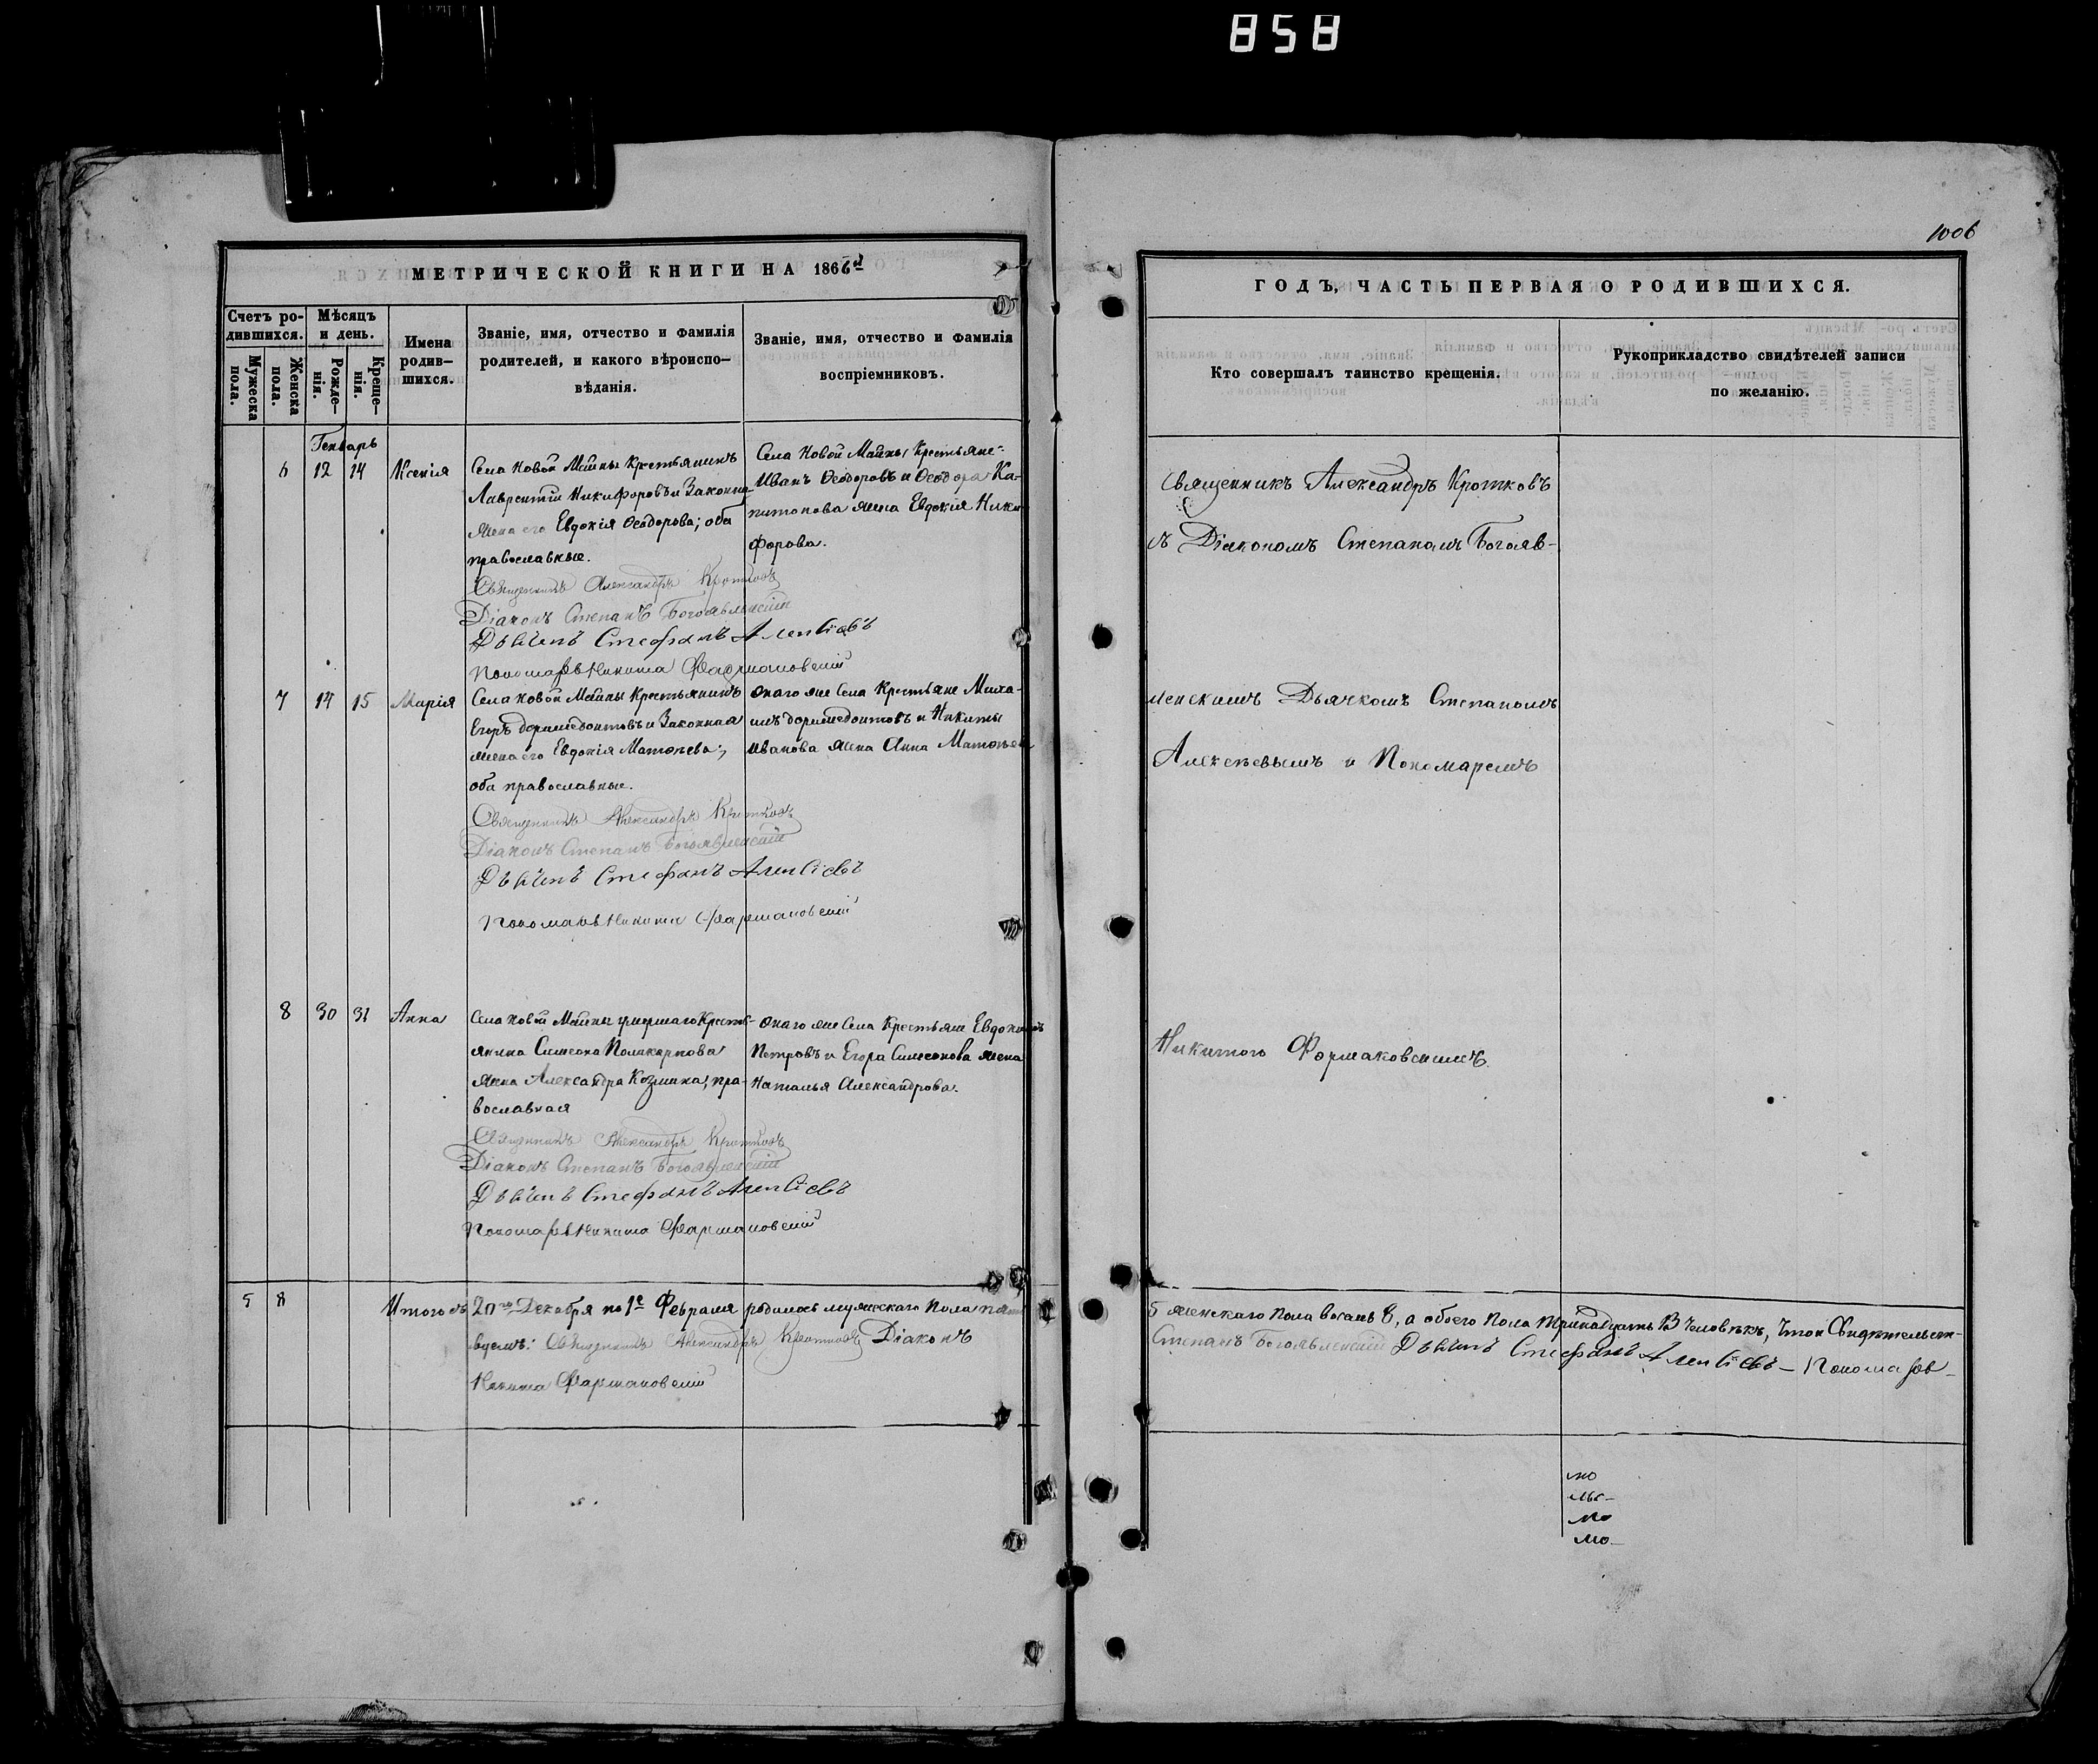 858
1006
МЕТРИЧЕСКОЙ КНИГИ НА 1866й
Счетъ ро-
дившихся.
Мужеска
пола.
Женска
пола.
Мѣсяцъ
и день.
Рожде-
нія.
Креще-
нія.
Имена
родив-
шихся.
Званіе, имя, отчество и фамилія
родителей, и какого вѣроиспо-
вѣданія.
Званіе, имя, отчество и фамилія
воспріемниковъ.
Генварь
6 12 14 Ксенія
Села Новой Майны Крестьянинъ
Лаврентій Никифоровъ и Законная
жена его Евдокія Ѳеодорова; оба
православные.
Села Новой Майны Крестьяне:
Иванъ Ѳеодоровъ и Ѳеодора Ка-
питонова жена Евдокія Ники-
форова.
Священникъ Александръ Кротковъ
Діаконъ Степанъ Богоявленскій
Дьячекъ Стефанъ Алексіевъ
Пономарь Никита Фармаковскій
7 14 15 Марія
Села Новой Майны Крестьянинъ
Егоръ Дормедонтовъ и Законная
жена его Евдокія Матѳеева;
оба православные.
Онаго же Села Крестьяне Миха-
илъ Дормедонтовъ и Никиты
Иванова жена Анна Матѳеева
Священникъ Александръ Кротковъ
Діаконъ Степанъ Богоявленскій
Дьячекъ Стефанъ Алексіевъ
Пономарь Никита Фармаковскій
8 30 31 Анна
Села Новой Майны умершаго Кресть-
янина Симеона Поликарпова
жена Александра Козмина, пра-
вославная
Онаго же Села Крестьяне Евдокимъ
Петровъ и Егора Симеонова жена
Наталья Александрова.
Священникъ Александръ Кротковъ
Діаконъ Степанъ Богоявленскій
Дьячекъ Стефанъ Алексіевъ
Пономарь Никита Фармаковскій
5 8 Итого съ 20го Декабря по 1е Февраля родилось мужескаго пола пять
вуемъ: Священникъ Александръ Кротковъ Діаконъ
Никита Фармаковскій
ГОДЪ, ЧАСТЬ ПЕРВАЯ О РОДИВШИХСЯ.
Кто совершалъ таинство крещенія.
Рукоприкладство свидѣтелей записи
по желанію.
Священникъ Александръ Кротковъ
съ Діакономъ Степаномъ Богояв-
ленскимъ Дьячкомъ Степаномъ
Алексѣевымъ и Пономаремъ
Никитою Формаковскимъ
5 женскаго пола восемь 8, а обоего пола тринадцать 13 человѣкъ, Что и Свидѣтельст-
Степанъ Богоявленскій Дьячекъ Стефанъ Алексіевъ – Пономарь